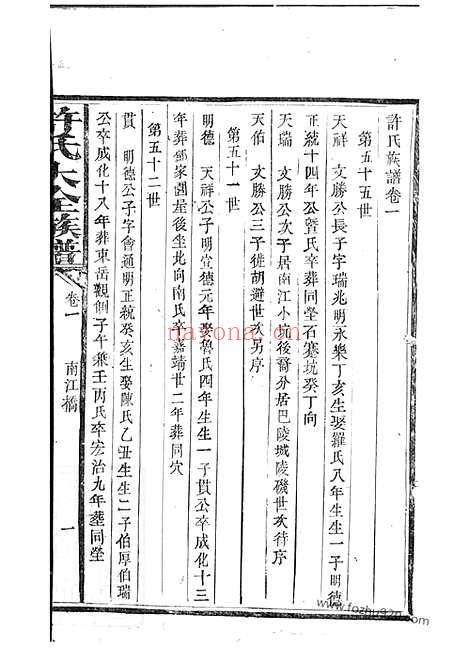 許氏族譜卷一
第五十五世
天祥 文勝公長子字瑞兆明永樂丁亥生娶羅氏八年生生一子明德
正統十四年公暨氏卒葬同塋石寨坑癸丁向
天瑞 文勝公次子居南江小坑後裔分居巴陵城陵磯世次待序
天佑 文勝公三子徙胡避世次另序
第五十一世
明德 天祥公子明宣德元年娶魯氏四年生生一子貫公卒成化十三
年葬鄒家園屋後坐北向南氏卒嘉靖廿二年葬同穴
第五十二世
貫 明德公子字會通明正統癸亥生娶陳氏乙丑生生二子伯厚伯瑞
公卒成化十八年葬東岳觀側子午兼壬丙氏卒宏治九年葬同塋
許氏大全族譜
卷一
南江橋
一
nayona.cn
www.fozhu920.com